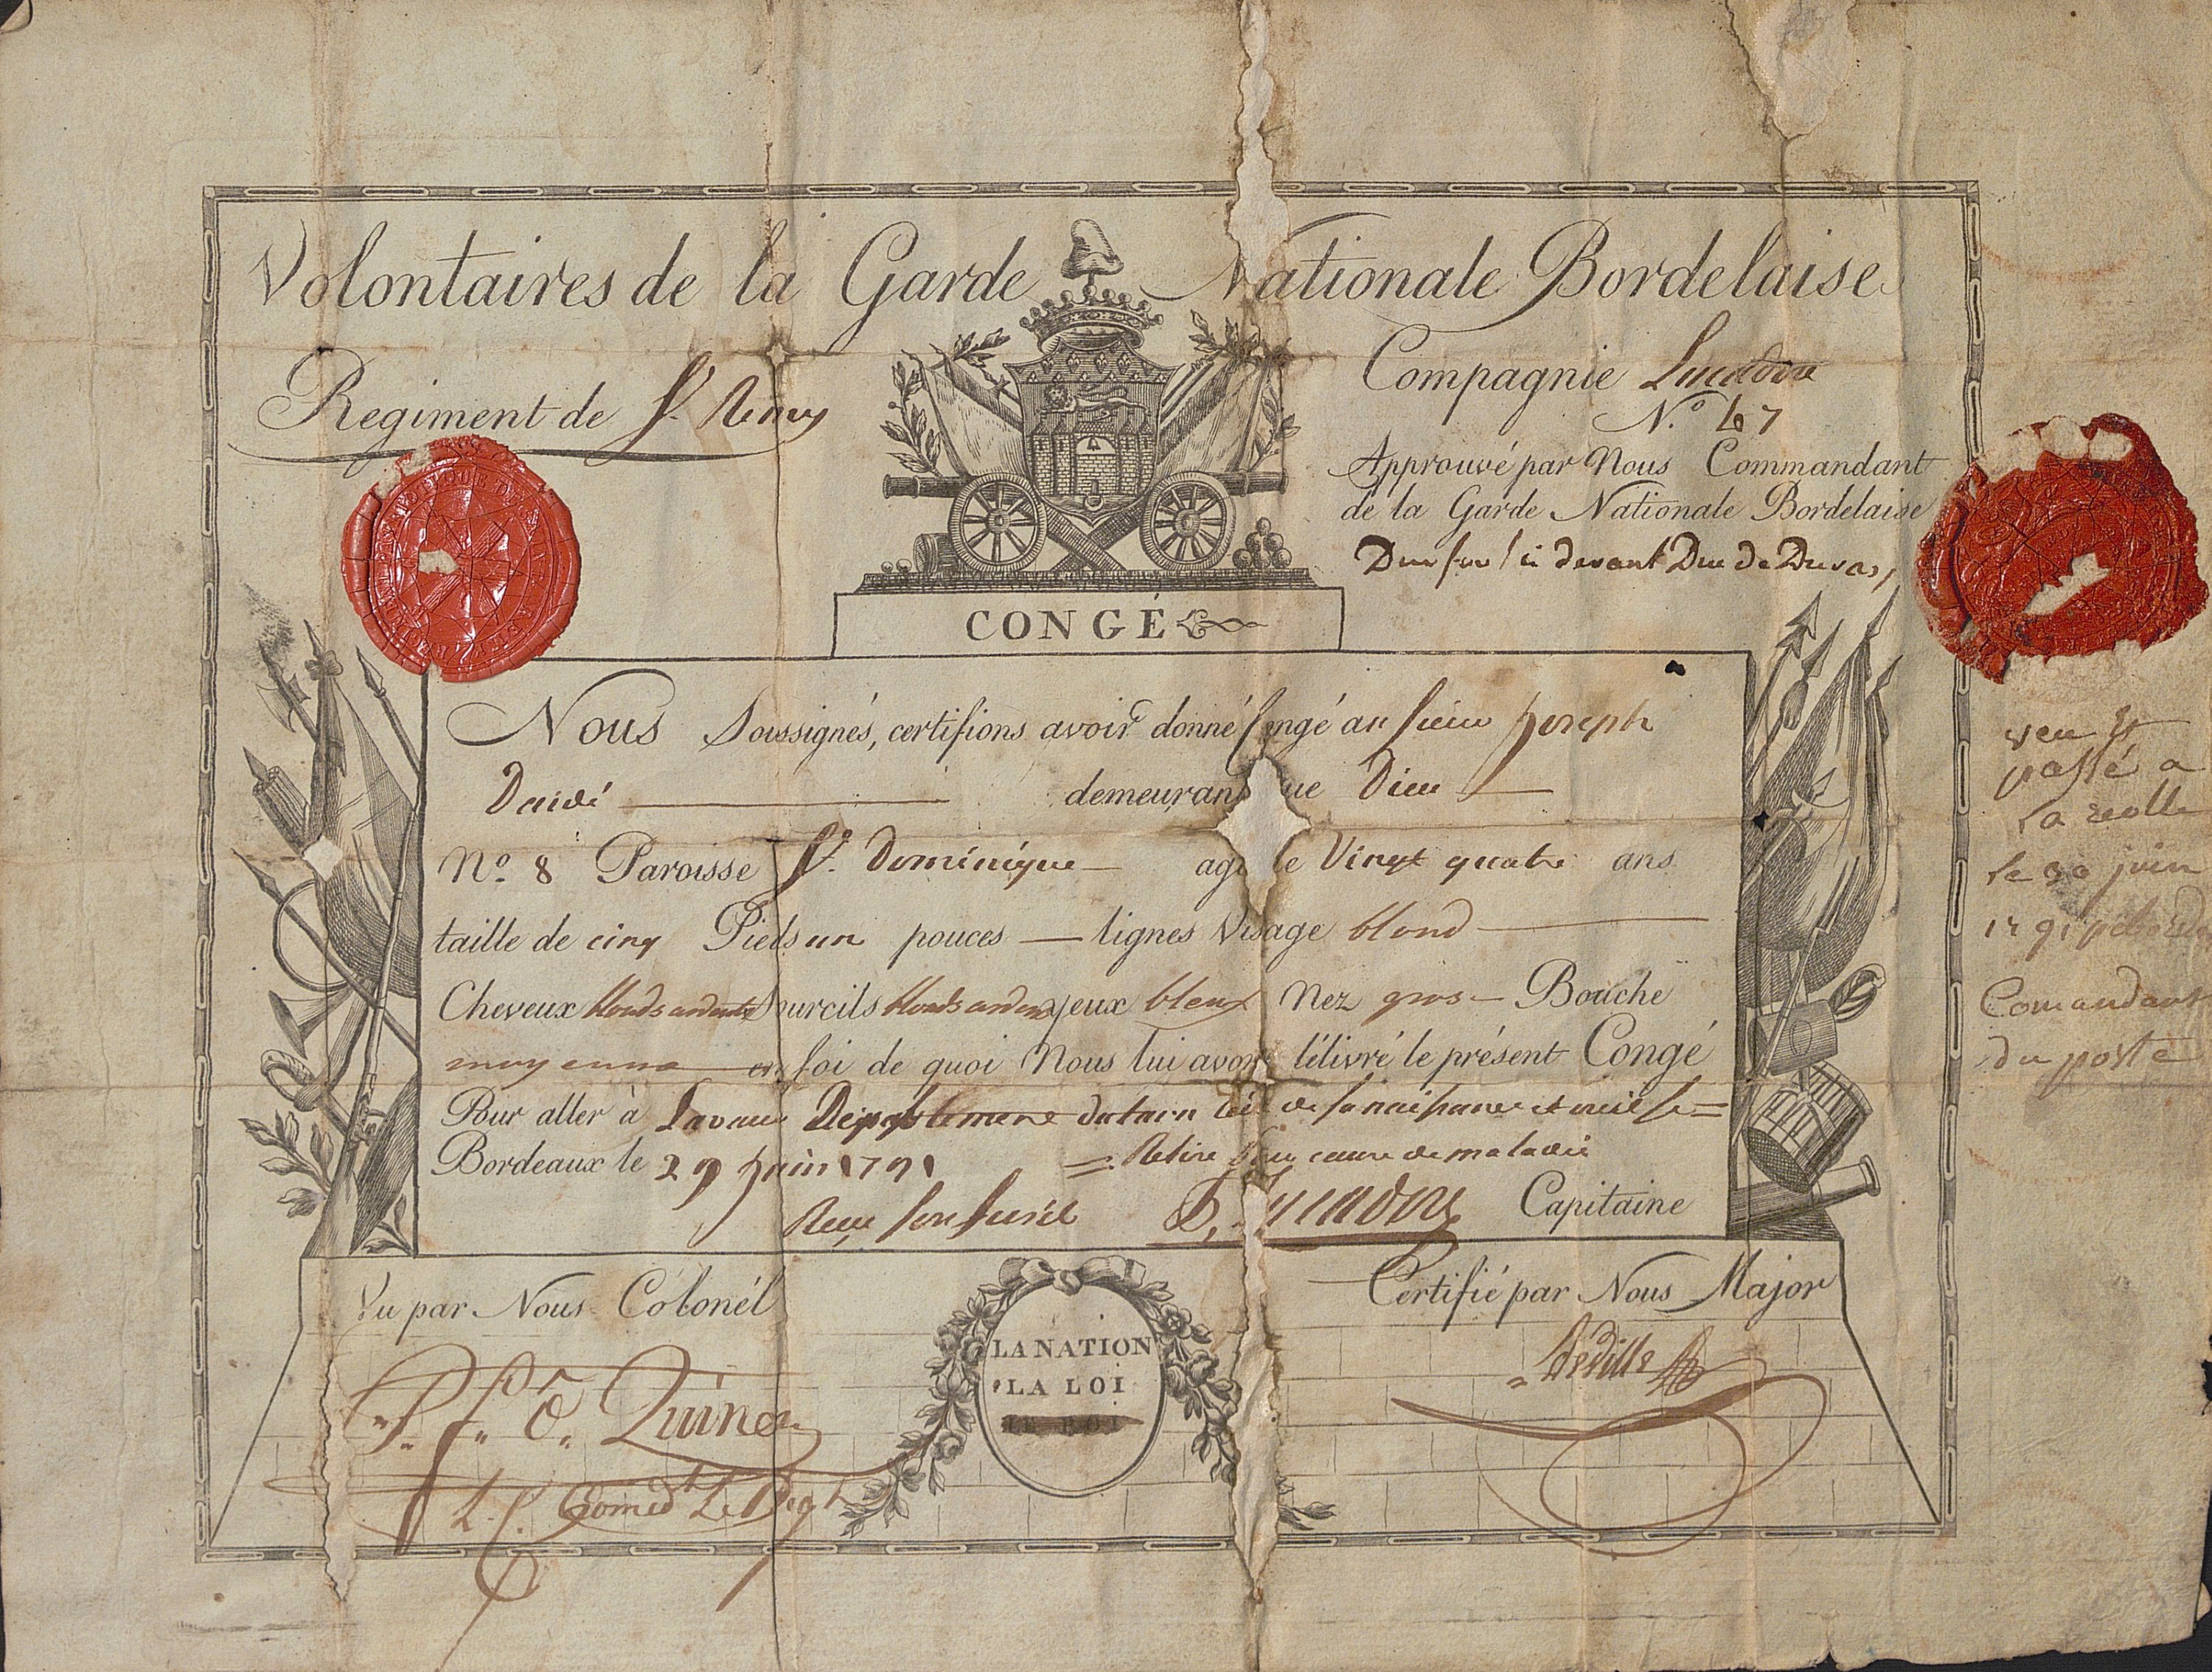 Volontaires de la Garde Nationale Bordelaise
Regiment de St. Remy
Compagnie
N.o 67
Approuvé par Nous Commandant
de la Garde Nationale Bordelaise
Durfort ci devant Duc de Duras,
CONGÉ
Nous Soussignés, certifions avoir donné Congé au sieur Joseph
demeurant rue Dieu
No. 8 Paroisse St. Dominique agé de Vingt quatre ans
taille de cinq Pieds un pouces lignes Visage blond
Cheveux blonds ardents Sourcils blonds ardens yeux bleux Nez gros Bouche
moyenne en foi de quoi Nous lui avons délivré le présent Congé
Pour aller à Lavaur Departement du tarn lieu de sa naissance et
Bordeaux le 29 Juin 1791 = Retiré pour cause de maladie
Capitaine
Vu par Nous Colonél
Certifié par Nous Major
LA NATION
LA LOI
LE ROI
veu et
passé a
la reolle
le 30 juin
1791
Comandant
du poste